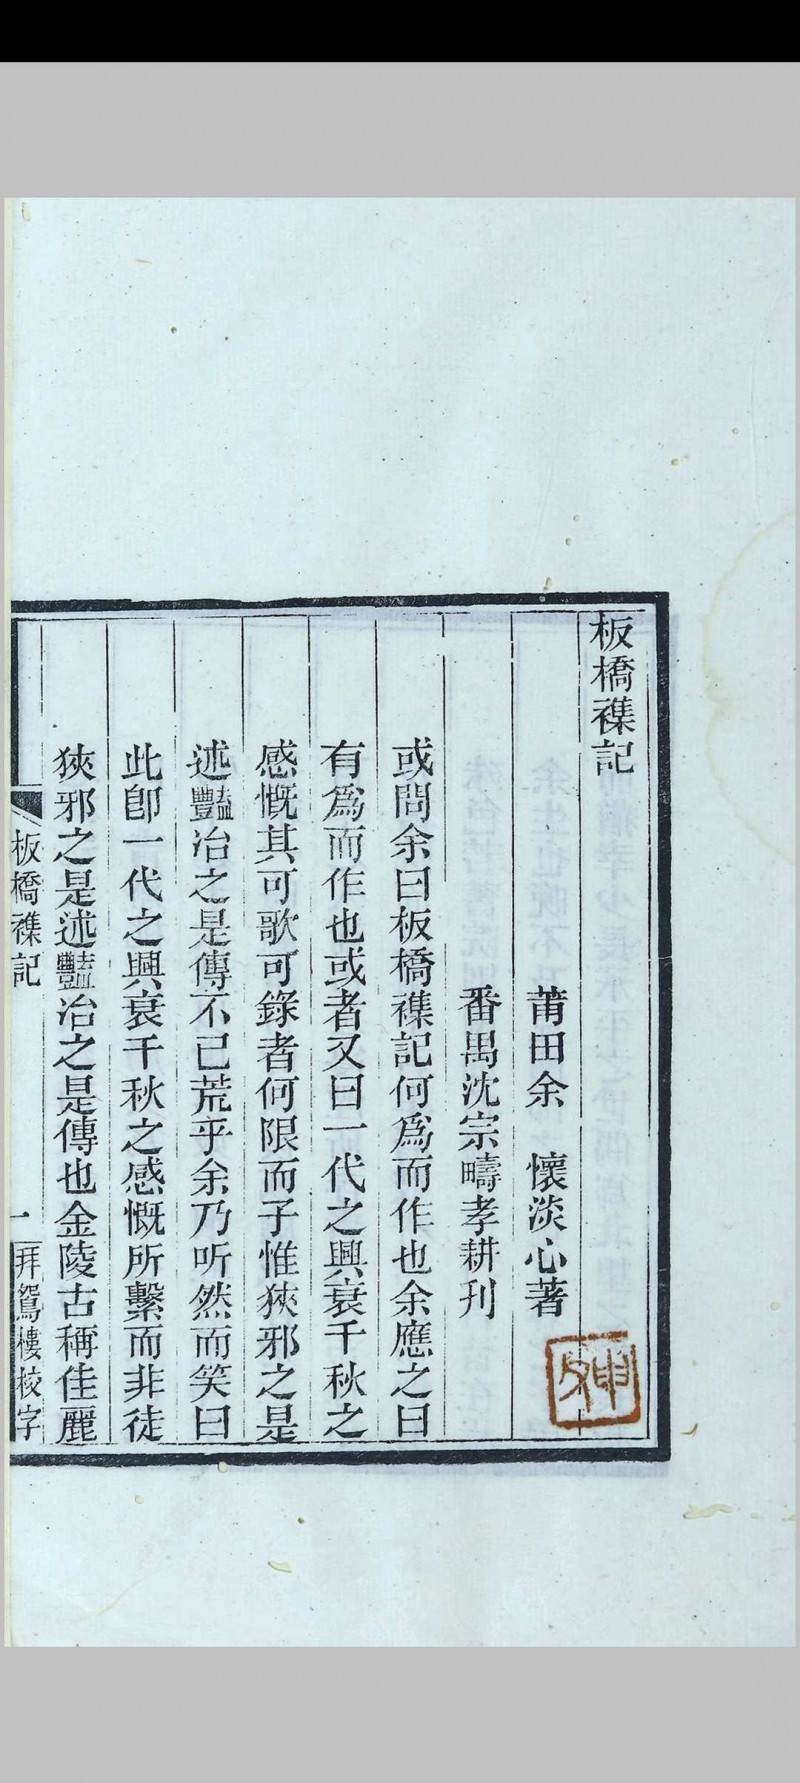 板橋襍記
莆田余　懷淡心著
番禺沈宗疇孝耕刊
或問余曰板橋襍記何爲而作也余應之曰
有爲而作也或者又曰一代之興衰千秋之
感慨其可歌可錄者何限而子惟狹邪之是
述豔冶之是傳不已荒乎余乃听然而笑曰
此卽一代之興衰千秋之感慨所繫而非徒
狹邪之是述豔冶之是傳也金陵古稱佳麗
板橋襍記　一　拜鴛樓校字